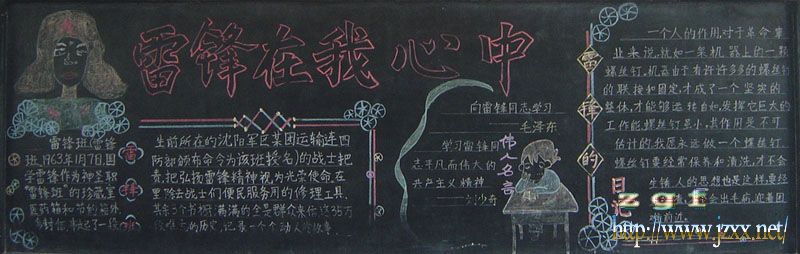 雷锋在我心中
雷锋班(雷锋
班,1963年1月7日,国
学雷作为神圣职
雷锋班"的珍藏室
医药箱和节约箱外
雷锋班
生前所在的沈阳军区某团运输连四
防部颁布命令为该班授名)的战士把
责,把弘扬雷锋精神视为光荣使命,在
里除去战士们便民服务用的修理工具、
其余3个书柜
的全是群众来信
的历史,记录一个个动人的故事
向雷锋同志学习
——毛泽东
学习雷锋同
志平凡而伟大的
共产主义精神
——刘少奇
伟人名言
雷锋的
日记
一个人的作用对于革命事
业来说,就如一架机器上的一颗
螺丝钉。机器由于有许许多多的螺丝钉
的联接和固定,才成了一个坚实的
整体,才能够运转自如,发挥它巨大的
工作能,螺丝钉虽小,其作用是不可
估计的,我愿永远做一个螺丝钉。
螺丝钉要经常保养和清洗,才不会
生锈。人的思想也是这样,要经
会出毛病
zgf
http://www.jzxx.net/